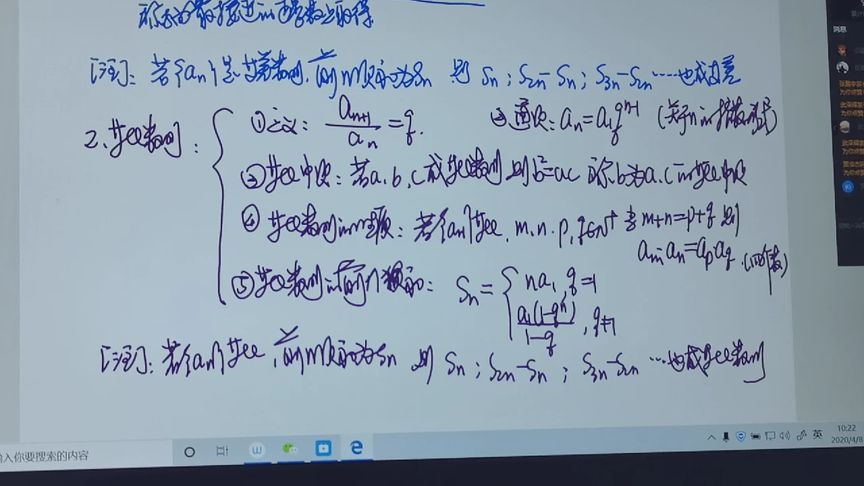 [注]: 若{an}是等差数列,前n项和为Sn 则 Sn ; S2n-Sn ; S3n-S2n ……也成等差
2. 等比数列:
①定义: an+1/an = q. ②通项: an=a1q^(n-1) (关于n的指数型函数)
③等比中项: 若a、b、c成等比数列 则b²=ac 称b为a、c的等比中项
④等比数列的性质: 若{an}等比, m、n、p、q∈N+ 当m+n=p+q 则
am·an=ap·aq
⑤等比数列的前n项和: Sn = { na1, q=1
a1(1-q^n)/1-q , q≠1
[注]: 若{an}等比, 前n项和为Sn 则 Sn ; S2n-Sn ; S3n-S2n …也成等比数列
输入你要搜索的内容
英
10:22
2020/4/8
消息